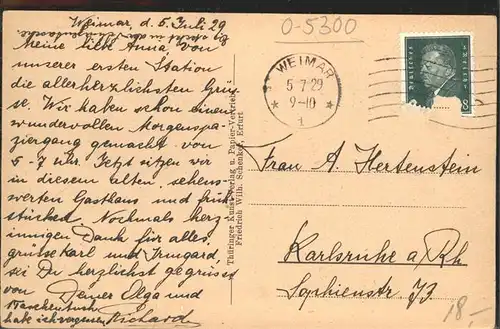 Weimar, d. 5. Juli 29
Meine liebe Anna, von
unserer ersten Station
die allerherzlichsten Grüs-
se. Wir haben schon einen
wundervollen Morgenspa-
ziergang gemacht von
5-7 Uhr. Jetzt sitzen wir
in diesem alten, sehens-
werten Gasthaus und früh-
stücken. Nochmals herz-
innigen Dank für alles,
grüsse Karl und Irmgard,
sei Du herzlichst gegrüsst
von Deiner Elga und
Richard
Taschentuch
habe ich vergessen
Thüringer Kunstverlag u. Papier-Vertrieb
Friedrich Wilh. Schenker, Erfurt
O-5300
WEIMAR
5 7 29
9-10
* 1 *
Deutsches Reich
8
Frau A. Hertenstein
Karlsruhe a/Rh
Sophienstr. 73.
18,-